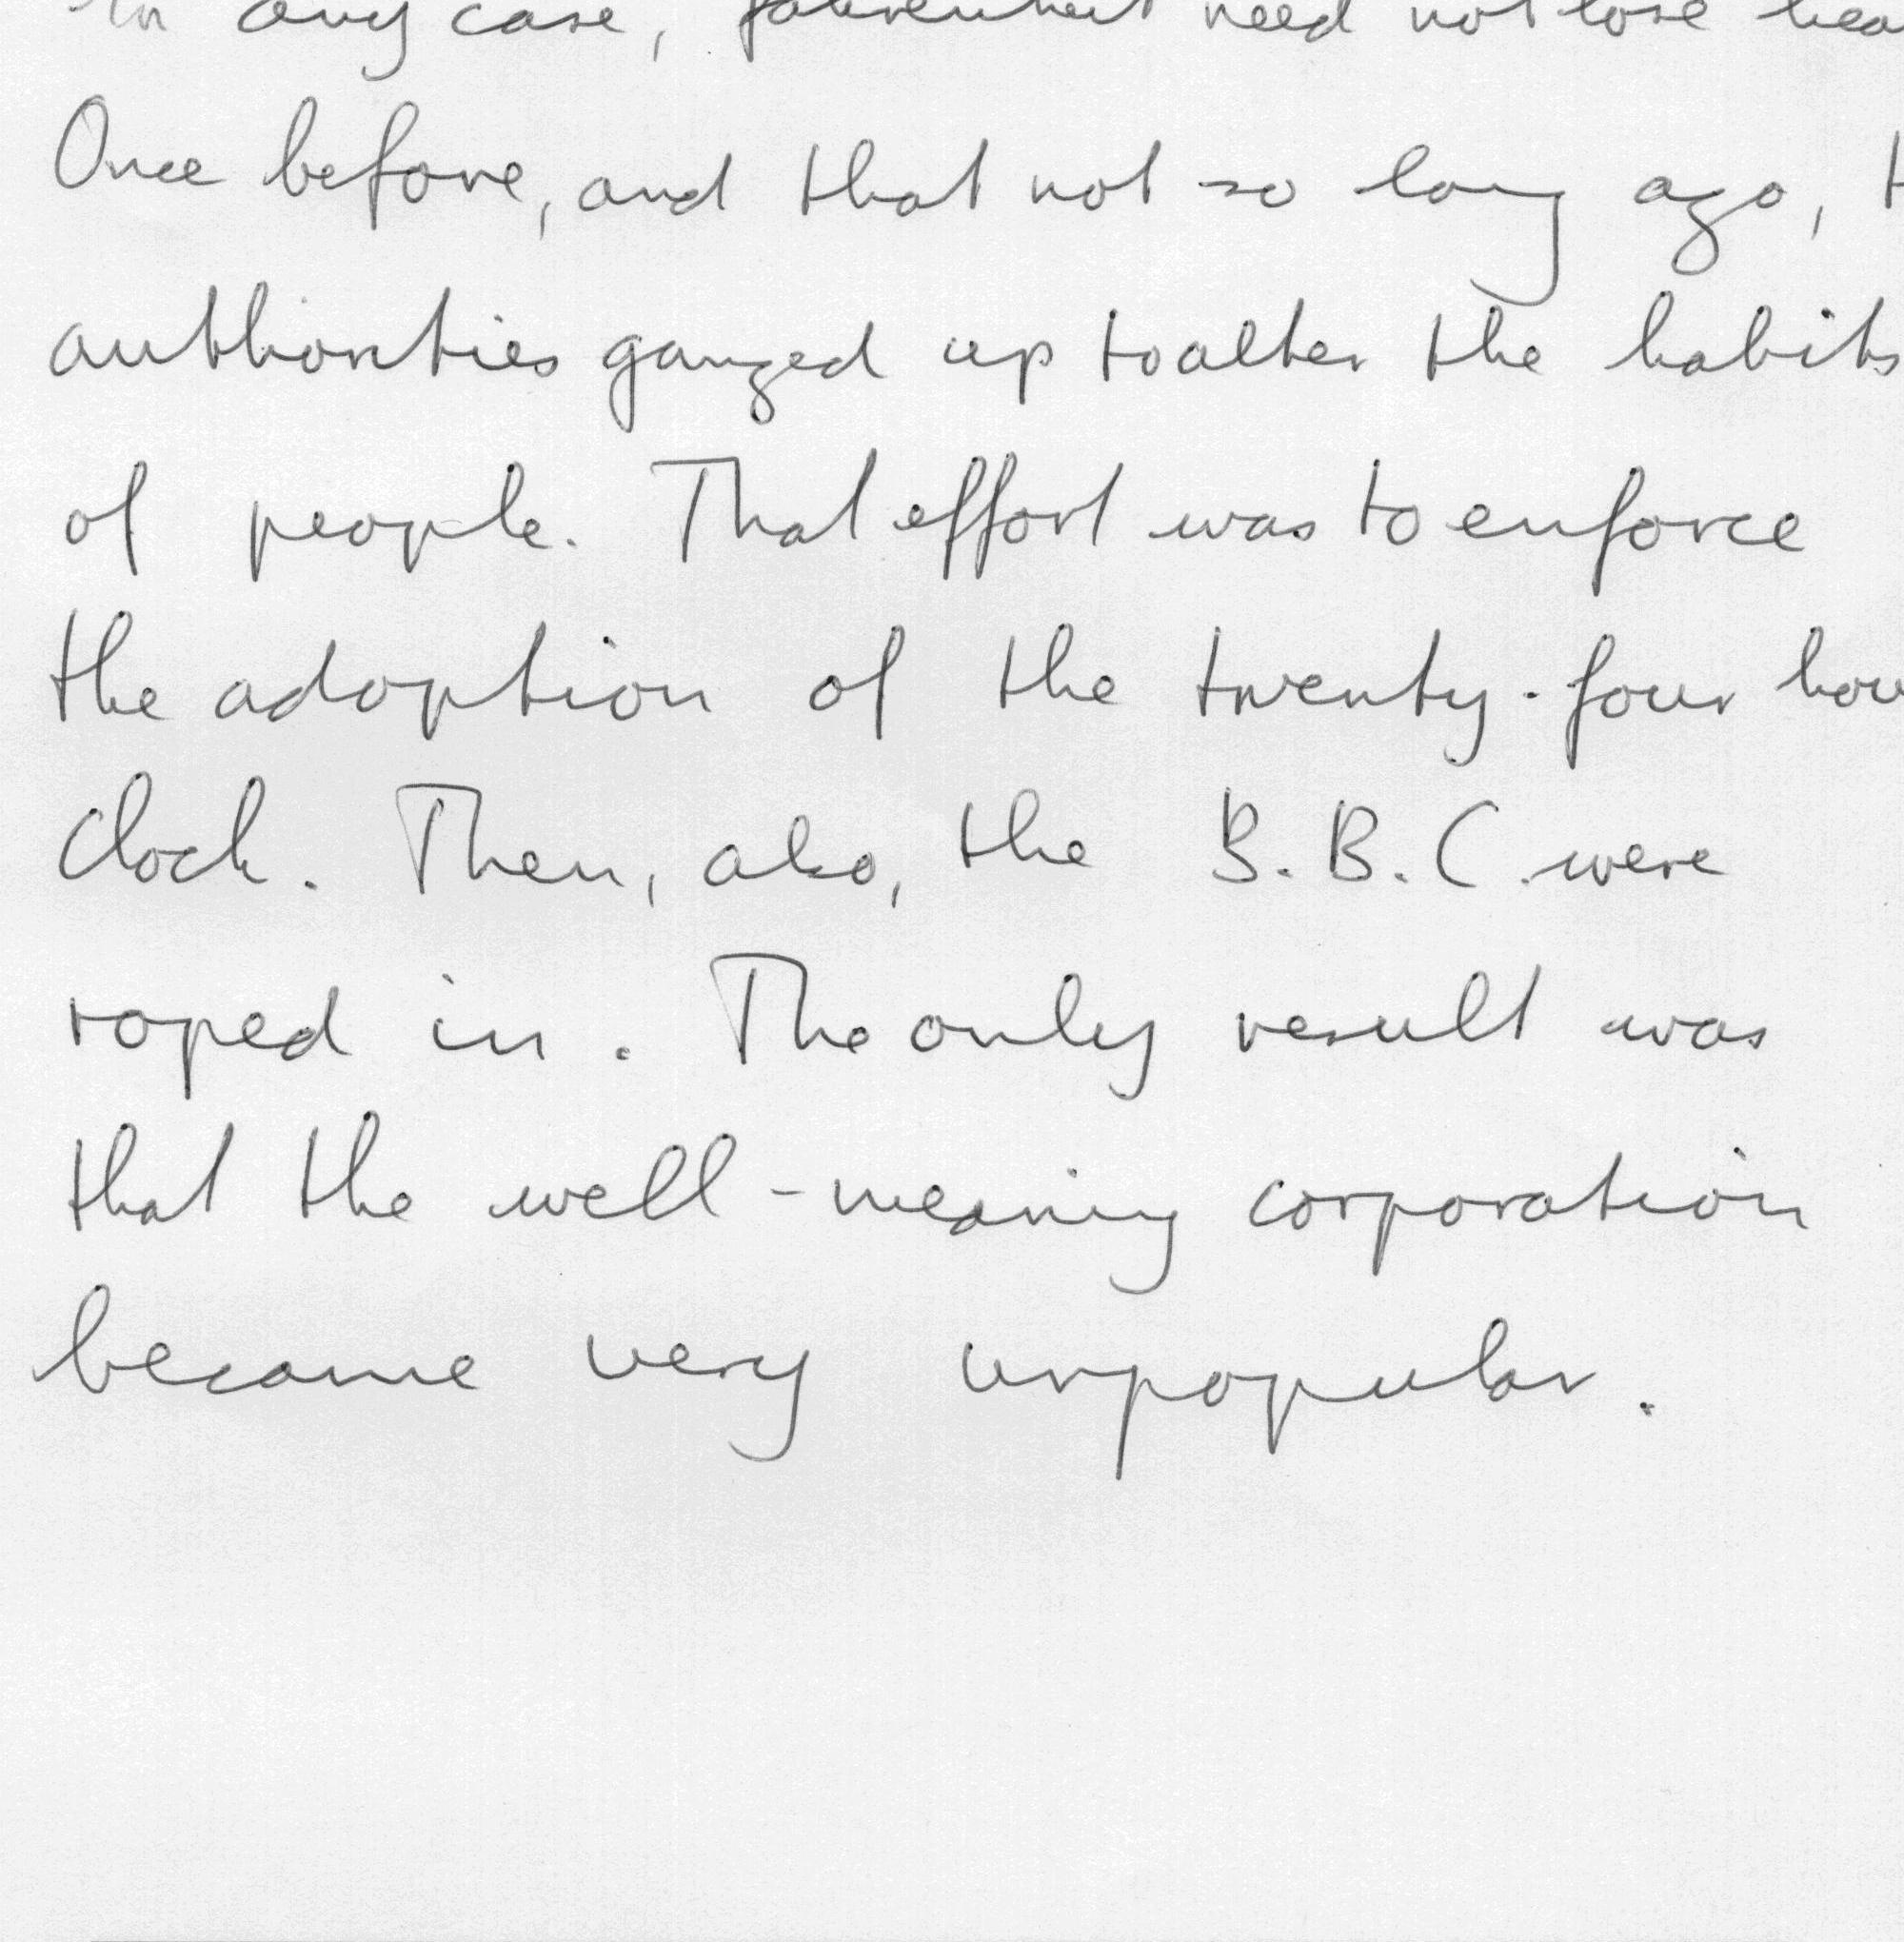 in any case, Fahrenheit need not lose hea
Once before, and that not so long ago, t
authorities ganged up to alter the habits
of people. That effort was to enforce
the adoption of the twenty-four hou
clock. Then, also, the B.B.C. were
roped in. The only result was
that the well-meaning corporation
became very unpopular.